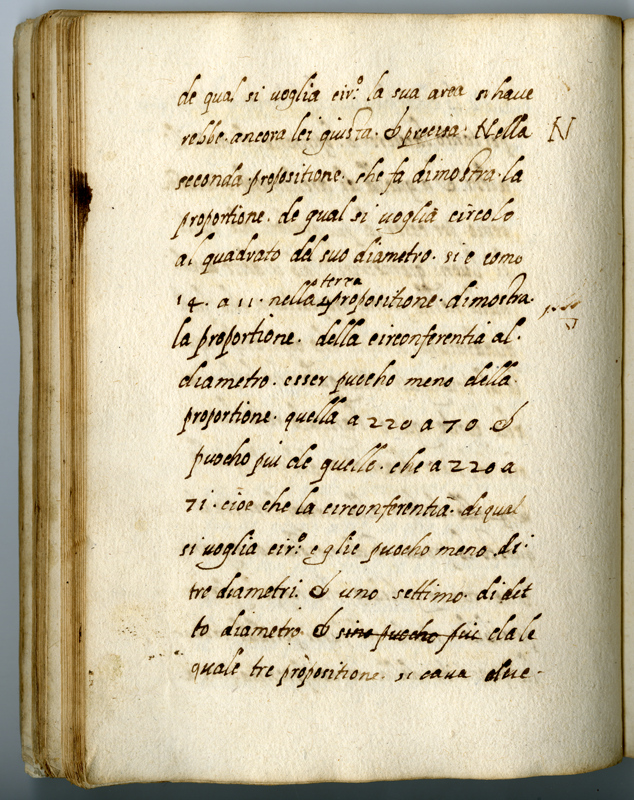 de qual si voglia cir.º la sua area si have
rebbe. ancora lei giusta. & precisa: Nella N
seconda. propositione. che fa dimostra. la
proportione. de qual si voglia circolo
al quadrato del suo diametro. si e como
terza
14. a 11. nella propositione. dimostra.
la proportione. della circonferentia al.
diametro. esser puocho meno della.
proportione. quella a 220 a 70 &
puocho piu de quello. che a 220 a
71. cioe che la circonferentia. di qual
si voglia cir.º eglie puocho meno di.
tre diametri. & uno settimo. di dit
to diametro. & sino puocho piu dale
quale tre propositione. si cava due.